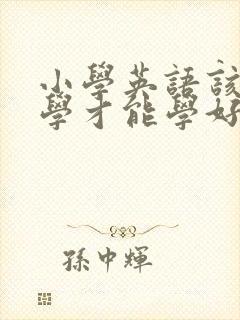 小學英語該
學才能學好
孫中輝